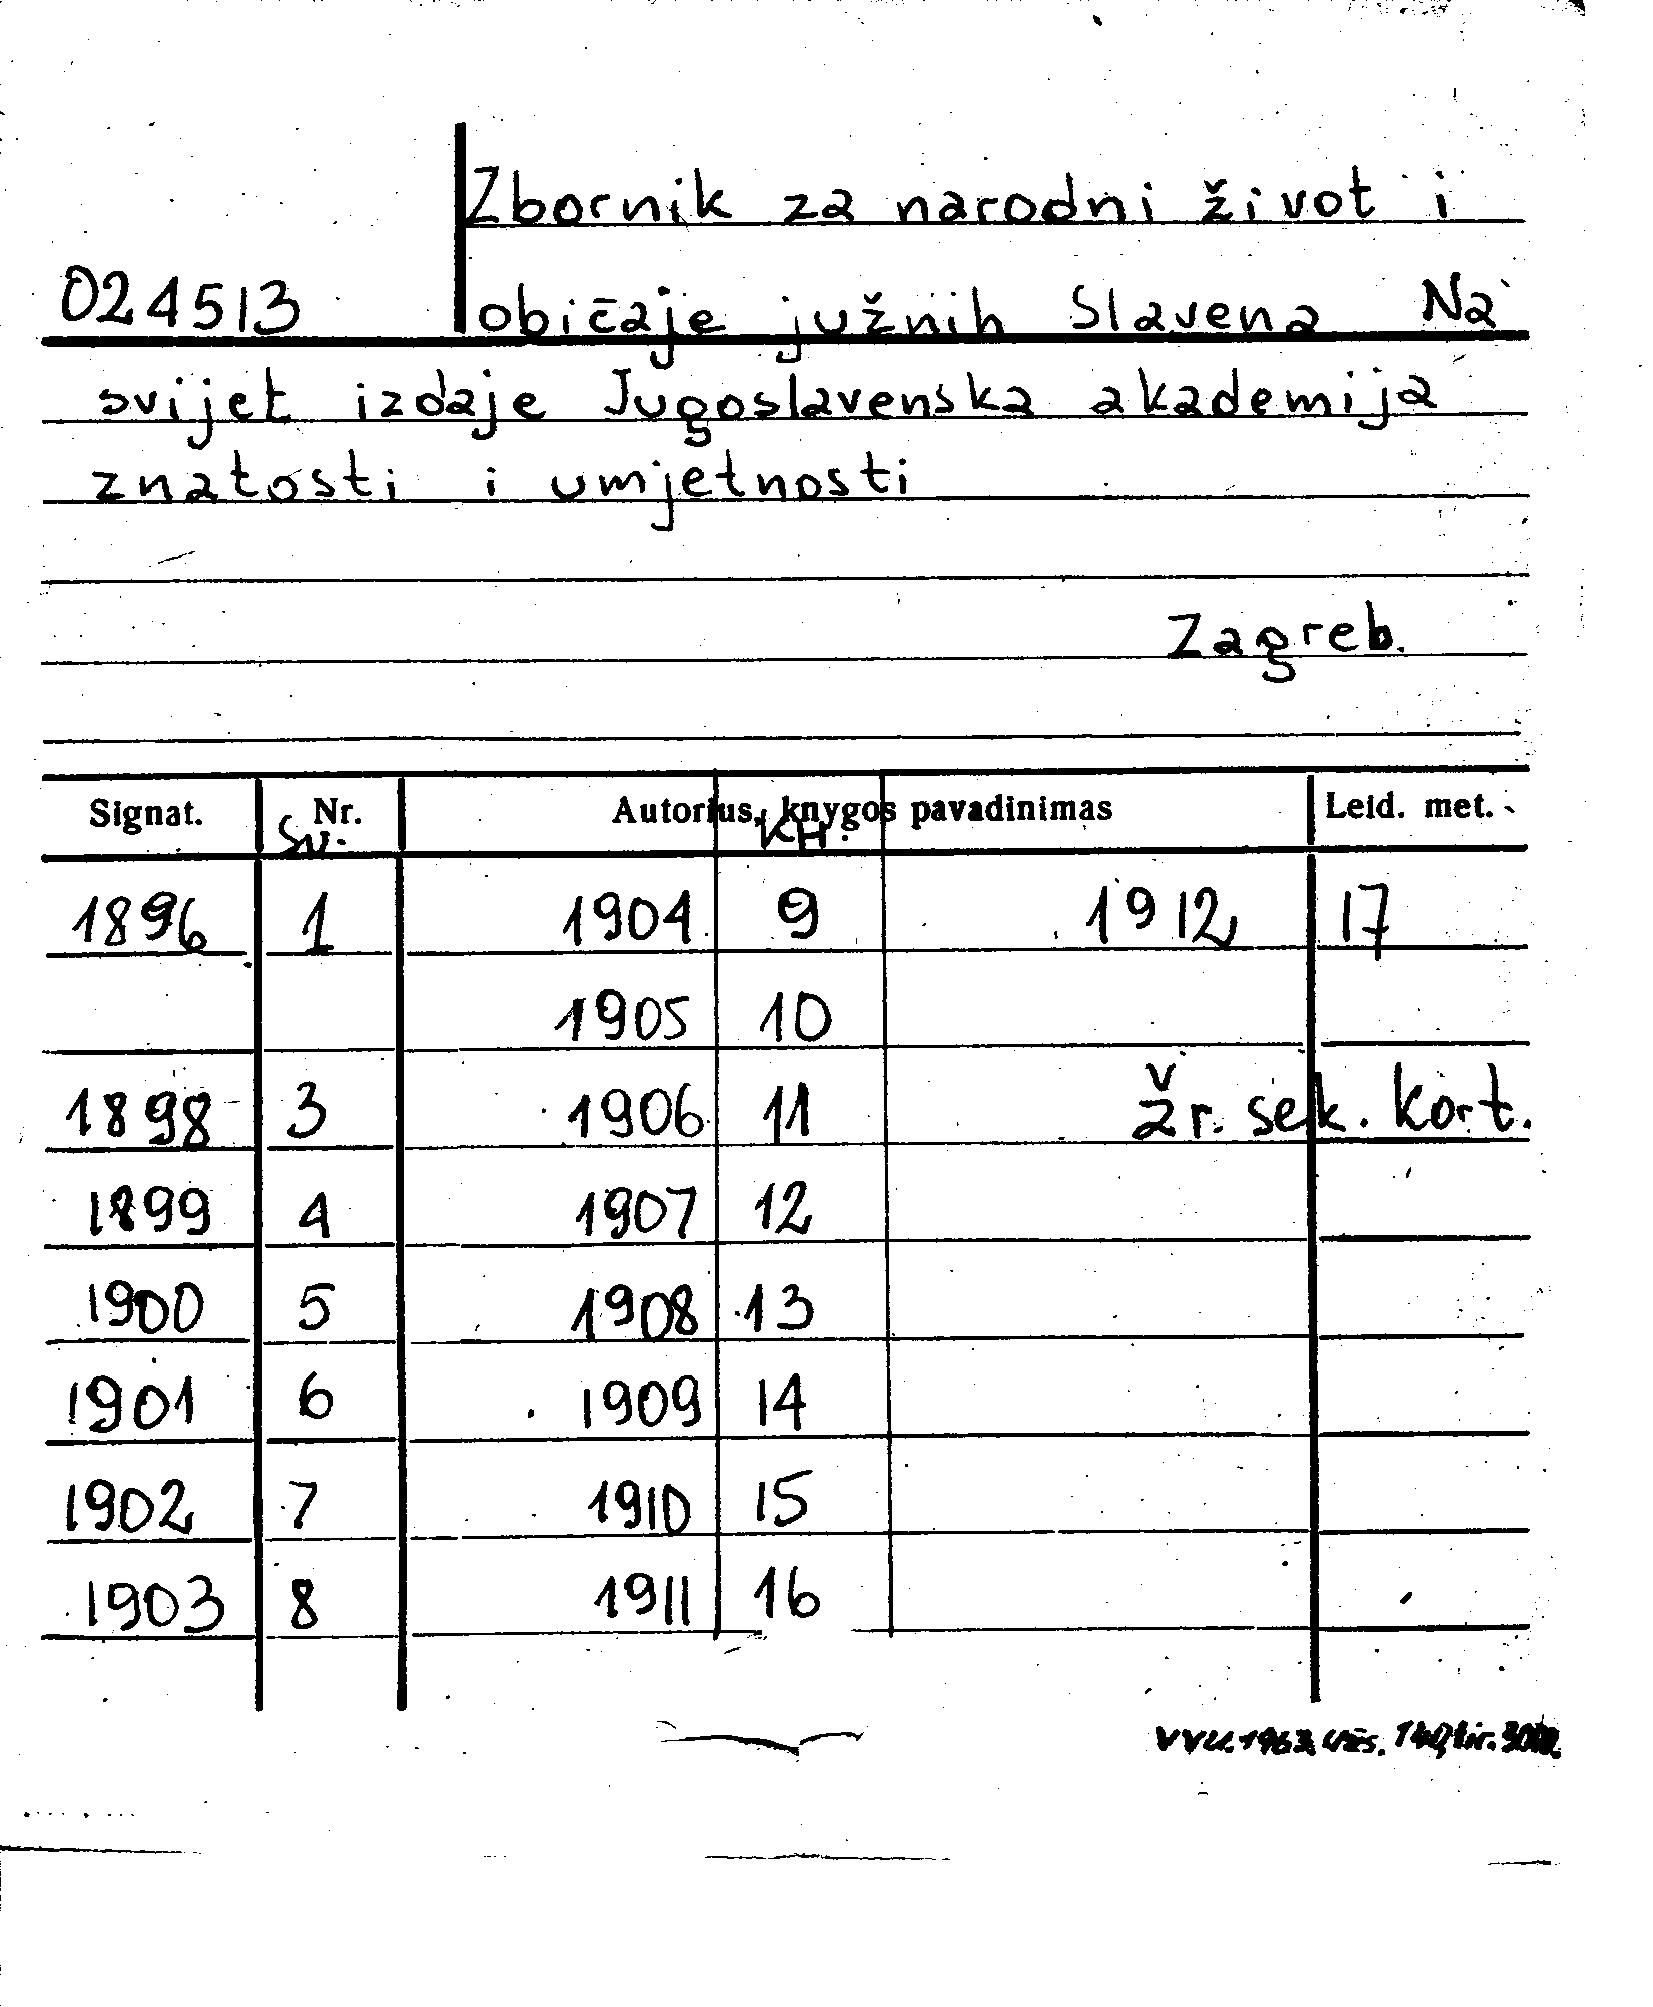 Zbornik za narodni život i
024513 običaje južnih Slavena Na
svijet izdaje Jugoslavenska akademija
znatosti i umjetnosti
Zagreb.
Signat. Nr. Autorius, knygos pavadinimas Leid. met.
Sv. KH.
1896 1 1904 9 1912 17
1905 10
1898 3 1906 11 žr. sek. kort.
1899 4 1907 12
1900 5 1908 13
1901 6 1909 14
1902 7 1910 15
1903 8 1911 16
VVU. užs. tir.